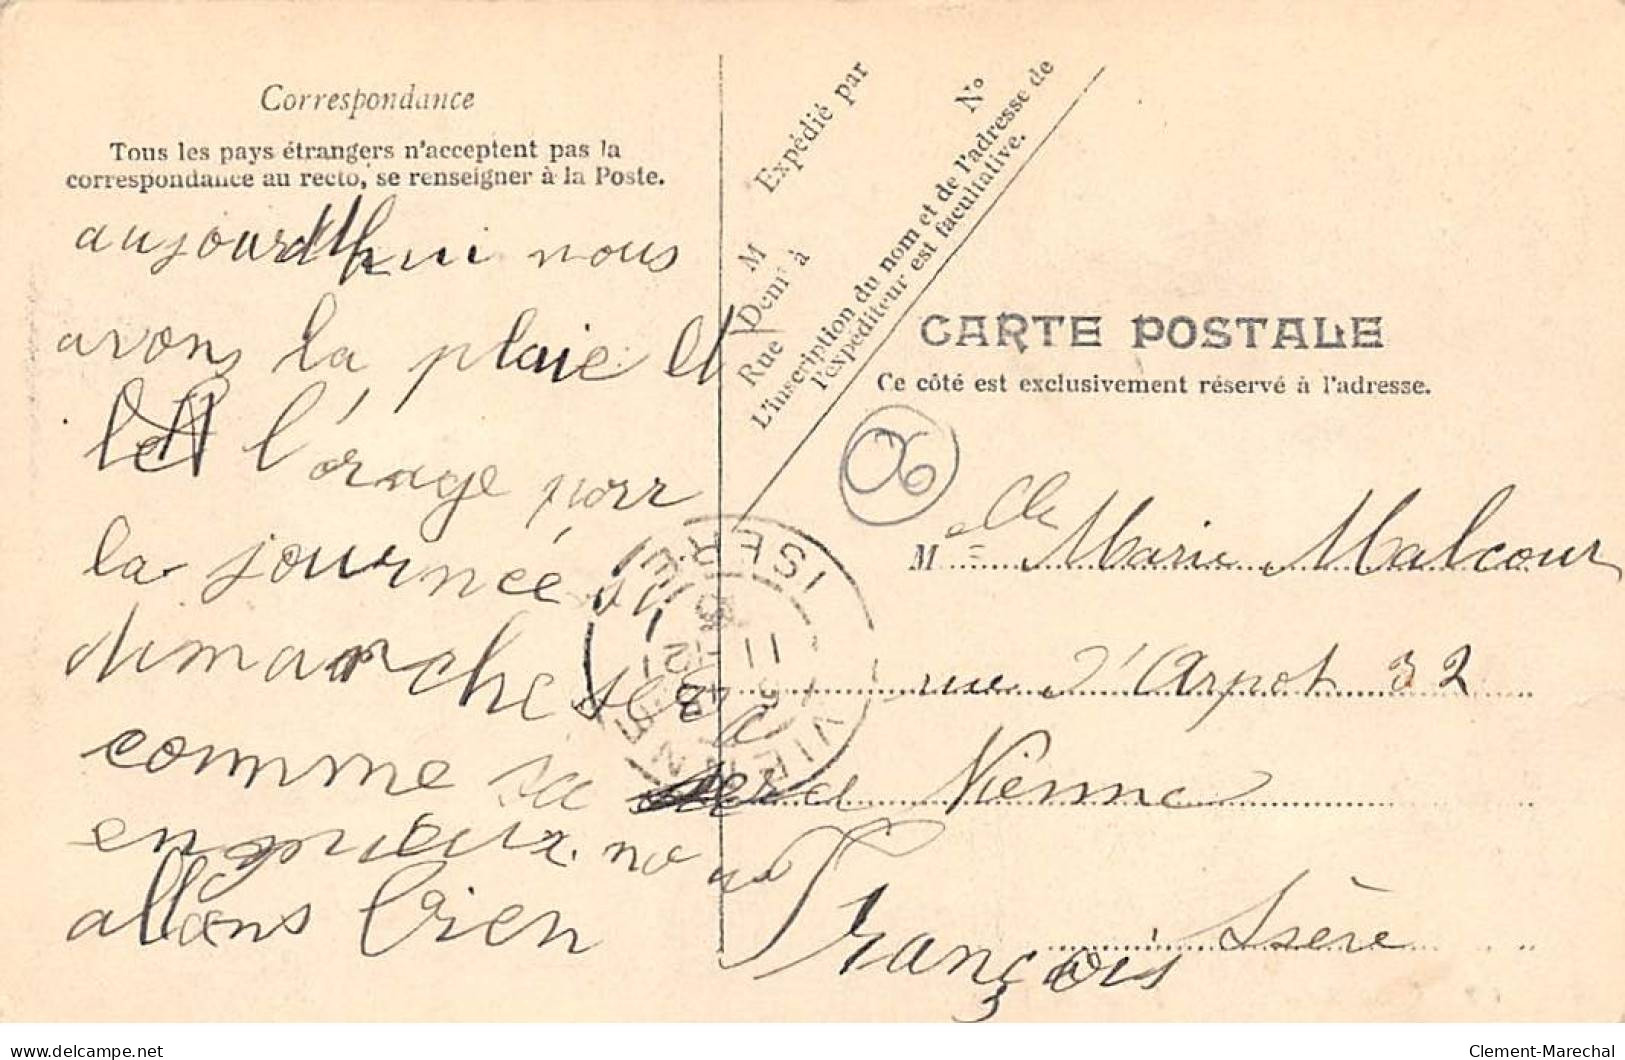 Correspondance
Tous les pays étrangers n'acceptent pas la
correspondance au recto, se renseigner à la Poste.
aujourd'hui nous
avons la plaie et
l'orage pour
la journée si
dimanche sera
comme sa sera
ennuieux. nous
allons bien
François
Expédié par
M
Demt à
Rue
No
L'inscription du nom et de l'adresse de
l'expéditeur est facultative.
CARTE POSTALE
Ce côté est exclusivement réservé à l'adresse.
06
Melle Marie Malcour
rue d'Arpot 32
Vienne
Isère
VIENNE
ISERE
delcampe.net
Clement-Marechal